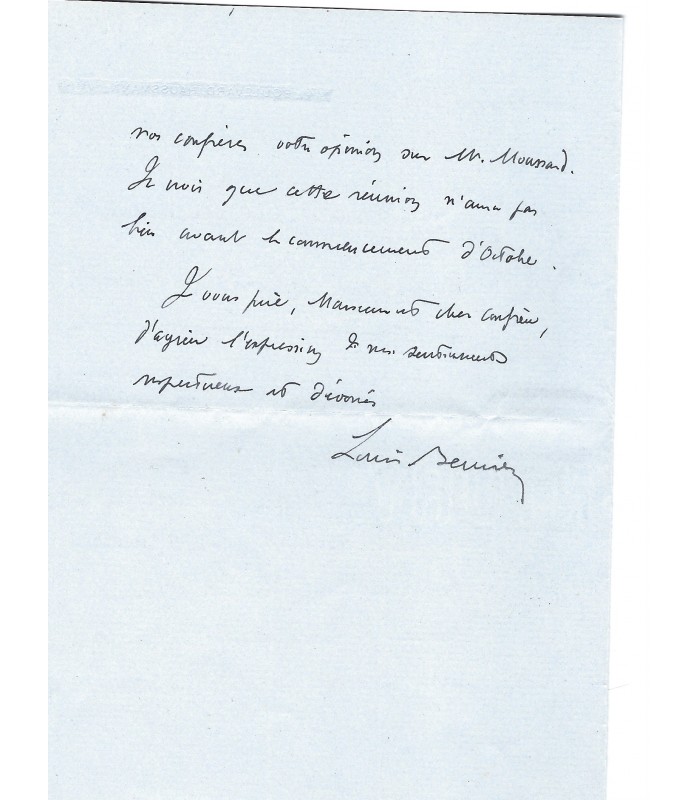 nos confrères votre opinion sur M. Moussard.
Je crois que cette réunion n'aura pas
lieu avant le commencement d'Octobre.
Je vous prie, Monsieur et cher confrère,
d'agréer l'expression de mes sentiments
respectueux et dévoués
Louis